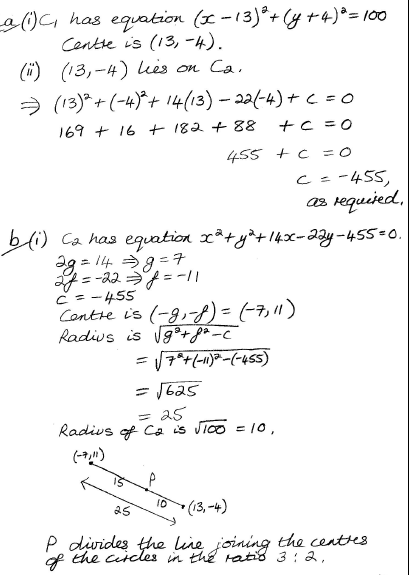 a (i) C₁ has equation (x-13)²+(y+4)²=100
Centre is (13,-4).
(ii) (13,-4) lies on C₂.
⇒ (13)²+(-4)²+14(13)-22(-4)+c=0
169 + 16 + 182 + 88 + c = 0
455 + c = 0
c = -455,
as required.
b (i) C₂ has equation x²+y²+14x-22y-455=0.
2g = 14 ⇒ g = 7
2f = -22 ⇒ f = -11
c = -455
Centre is (-g,-f) = (-7,11)
Radius is √(g²+f²-c)
= √(7²+(-11)²-(-455))
= √625
= 25
Radius of C₂ is √100 = 10.
(-7,11)
15
P
10
25
(13,-4)
P divides the line joining the centres
of the circles in the ratio 3:2.